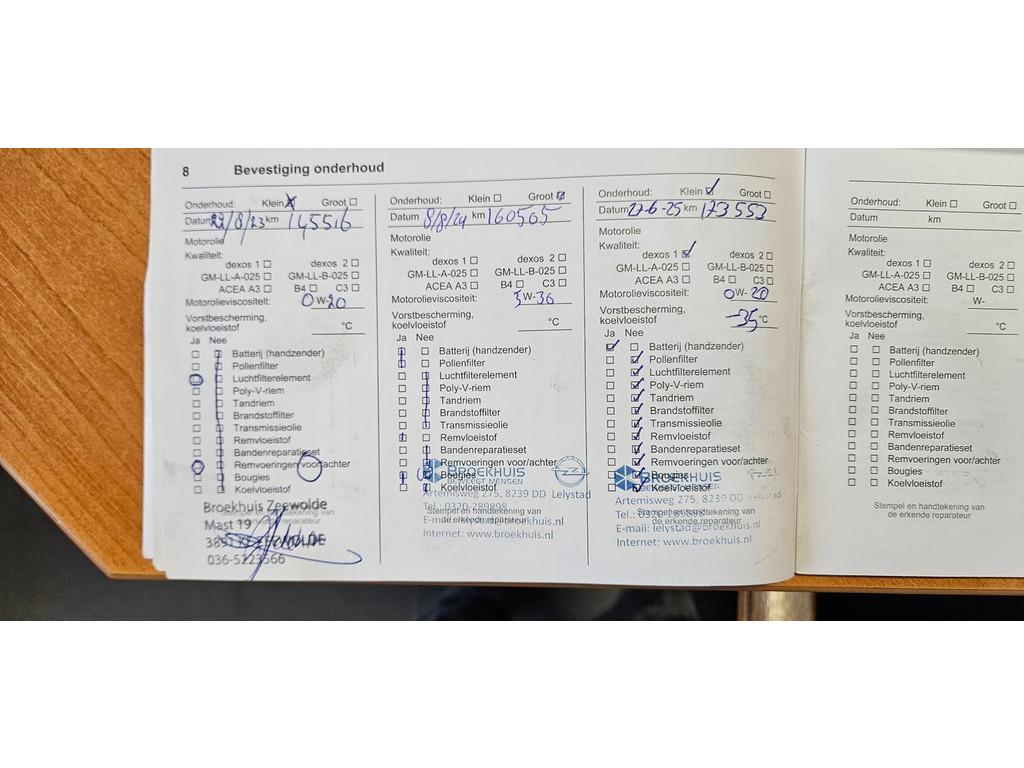 8 Bevestiging onderhoud
Onderhoud: Klein Groot
Datum 22/8/23 km 145516
Motorolie
Kwaliteit:
dexos 1 dexos 2
GM-LL-A-025 GM-LL-B-025
ACEA A3 B4 C3
Motorolieviscositeit: 0W-20
Vorstbescherming,
koelvloeistof °C
Ja Nee
Batterij (handzender)
Pollenfilter
Luchtfilterelement
Poly-V-riem
Tandriem
Brandstoffilter
Transmissieolie
Remvloeistof
Bandenreparatieset
Remvoeringen voor/achter
Bougies
Koelvloeistof
Broekhuis Zeewolde
Stempel en handtekening van
Mast 19
de erkende reparateur
036-5223566
Onderhoud: Klein Groot
Datum 8/8/24 km 160565
Motorolie
Kwaliteit:
dexos 1 dexos 2
GM-LL-A-025 GM-LL-B-025
ACEA A3 B4 C3
Motorolieviscositeit: 5W-30
Vorstbescherming,
koelvloeistof °C
Ja Nee
Batterij (handzender)
Pollenfilter
Luchtfilterelement
Poly-V-riem
Tandriem
Brandstoffilter
Transmissieolie
Remvloeistof
Bandenreparatieset
Remvoeringen voor/achter
BROEKHUIS
Bougies
BEWEEGT MENSEN
Koelvloeistof
Artemisweg 275, 8239 DD Lelystad
Tel.: 0320-289898
Stempel en handtekening van
de erkende reparateur
Internet: www.broekhuis.nl
Onderhoud: Klein Groot
Datum 27-6-25 km 173553
Motorolie
Kwaliteit:
dexos 1 dexos 2
GM-LL-A-025 GM-LL-B-025
ACEA A3 B4 C3
Motorolieviscositeit: 0W-20
Vorstbescherming,
koelvloeistof -35 °C
Ja Nee
Batterij (handzender)
Pollenfilter
Luchtfilterelement
Poly-V-riem
Tandriem
Brandstoffilter
Transmissieolie
Remvloeistof
Bandenreparatieset
Remvoeringen voor/achter
Bougies
BROEKHUIS
Koelvloeistof
Artemisweg 275, 8239 DD Lelystad
Tel.: 0320-289898
Stempel en handtekening van
de erkende reparateur
E-mail: lelystad@broekhuis.nl
Internet: www.broekhuis.nl
Onderhoud: Klein Groot
Datum km
Motorolie
Kwaliteit:
dexos 1 dexos 2
GM-LL-A-025 GM-LL-B-025
ACEA A3 B4 C3
Motorolieviscositeit: W-
Vorstbescherming,
koelvloeistof °C
Ja Nee
Batterij (handzender)
Pollenfilter
Luchtfilterelement
Poly-V-riem
Tandriem
Brandstoffilter
Transmissieolie
Remvloeistof
Bandenreparatieset
Remvoeringen voor/achter
Bougies
Koelvloeistof
Stempel en handtekening van
de erkende reparateur